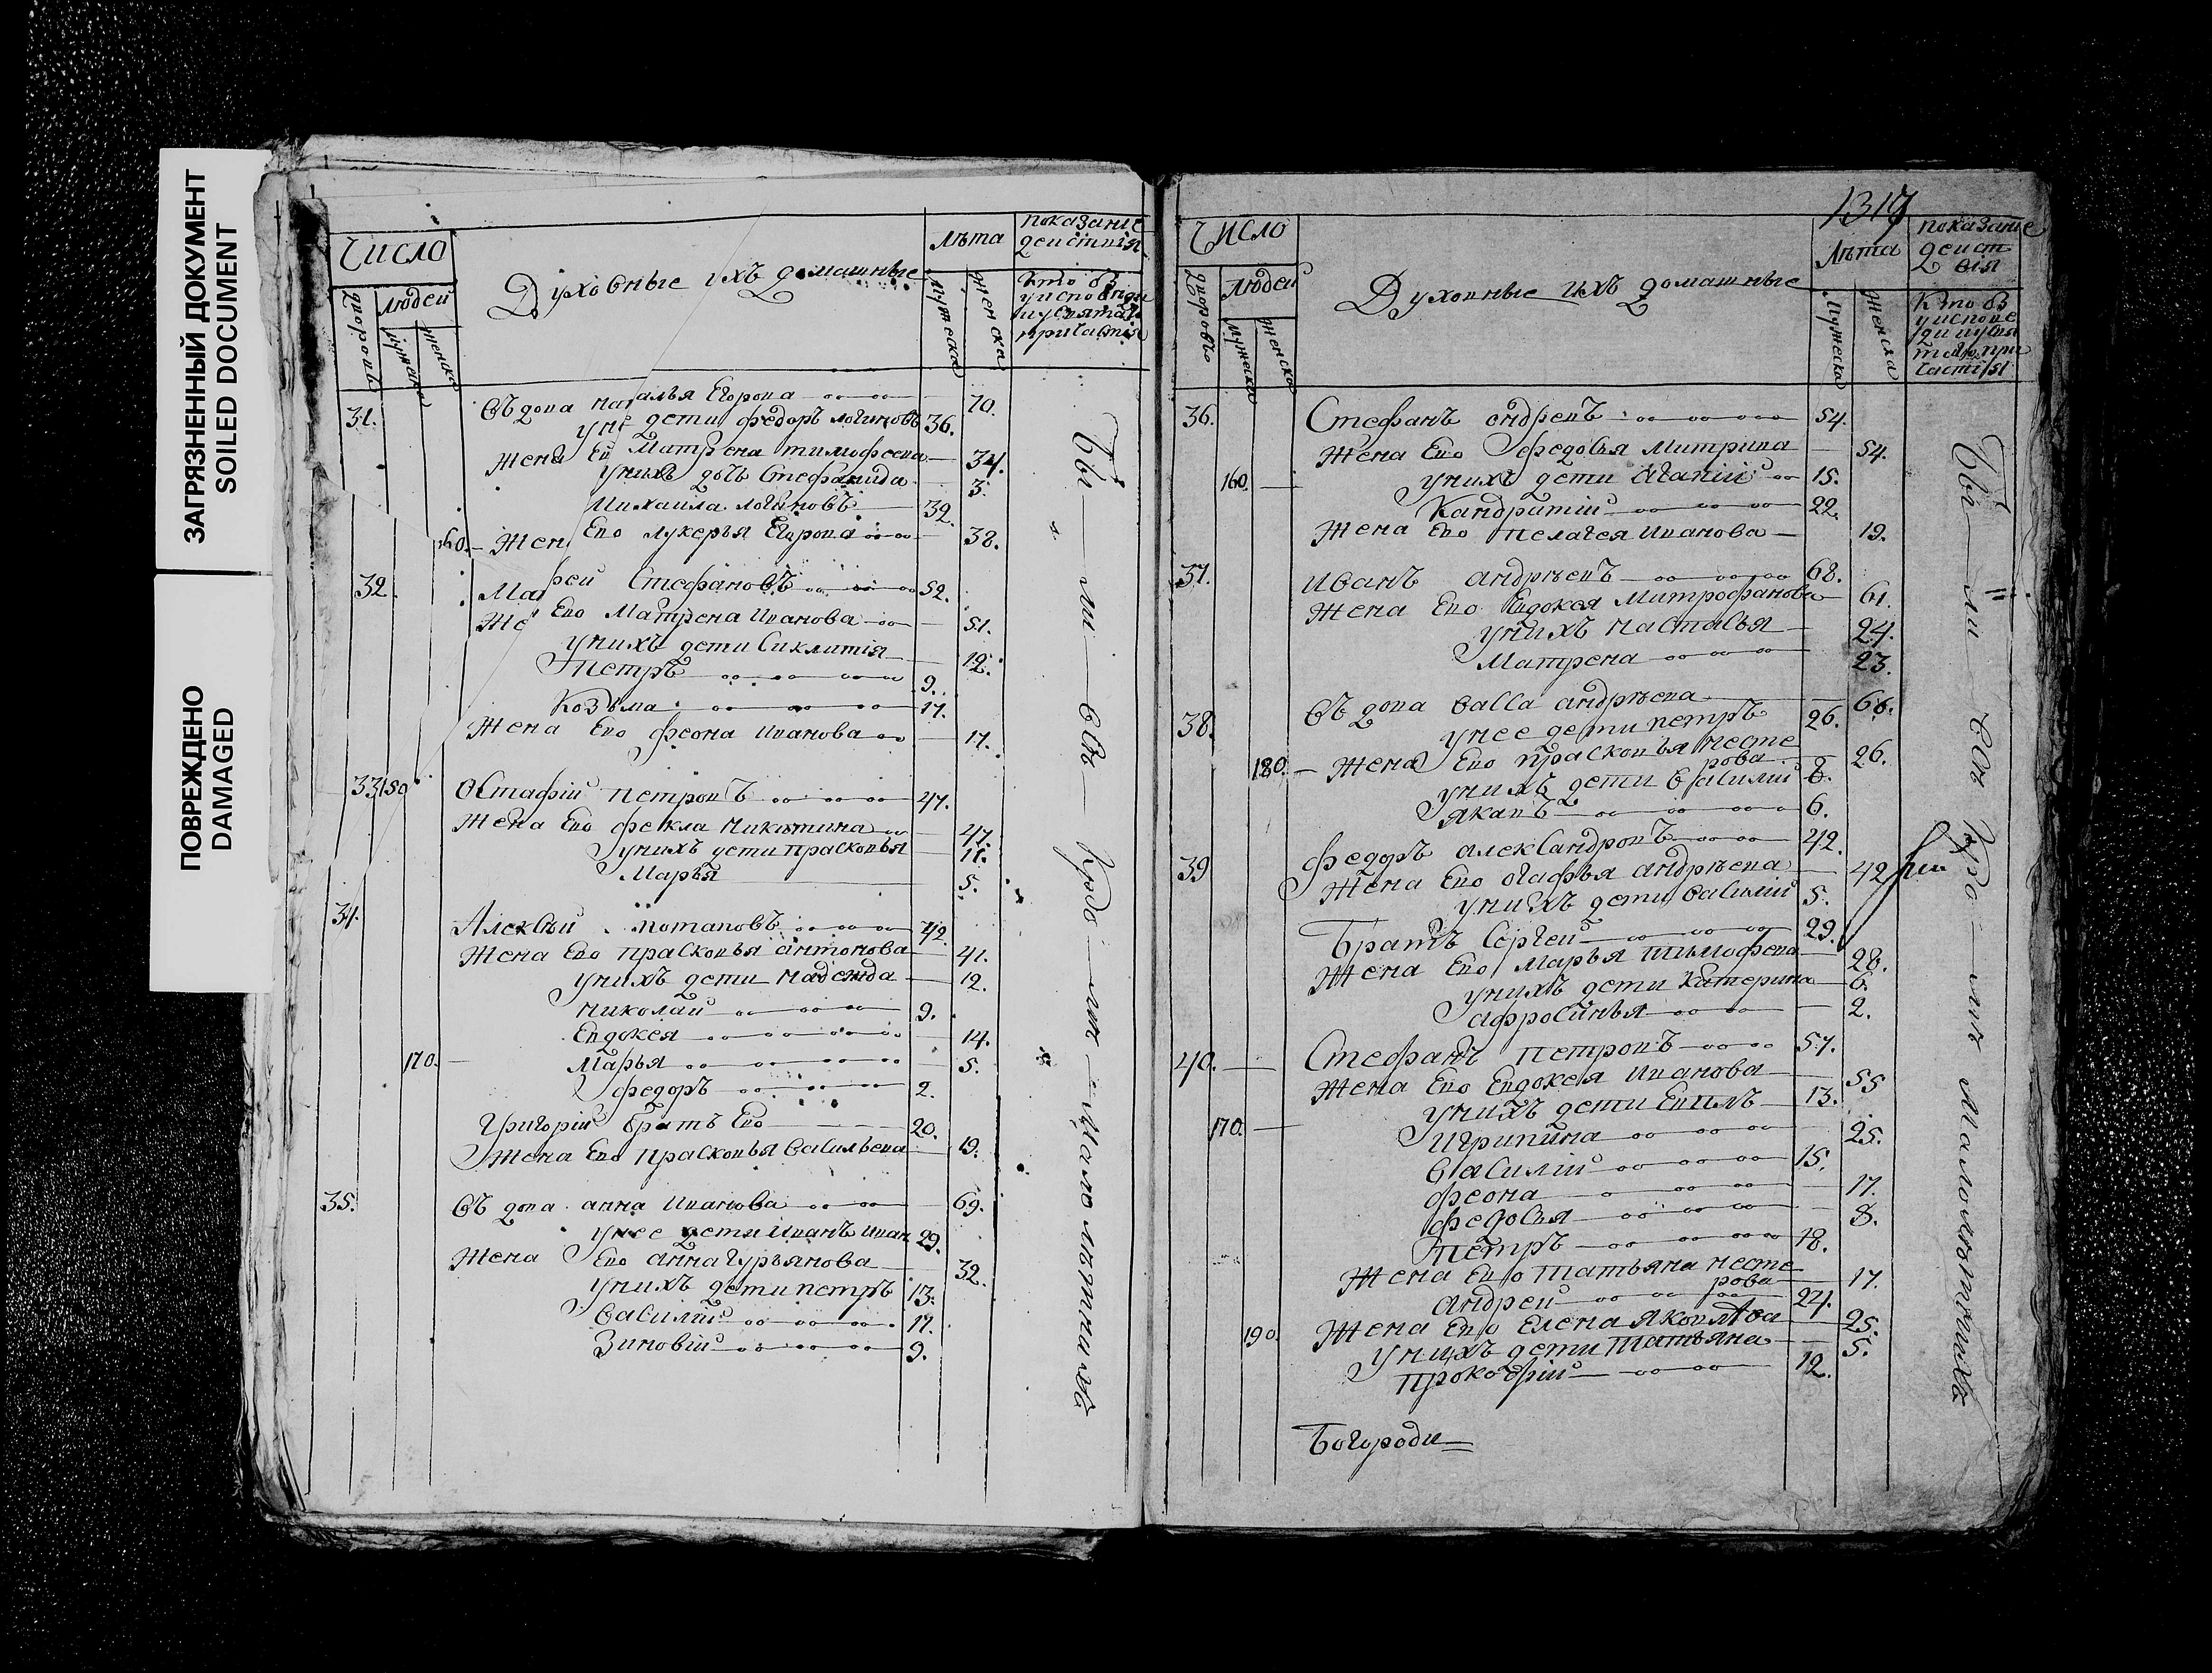 ЗАГРЯЗНЕННЫЙ ДОКУМЕНТ
SOILED DOCUMENT
ПОВРЕЖДЕНО
DAMAGED
Число
Людей
Духовные ихъ домашные
Лѣта
показание
Мужеска
Женска
31. Въдова Наталья Егорова 70.
дети федоръ логиновъ 36.
Жена Матрена тимофеева 34.
унихъ дочь Стефанида 3.
Михаила логиновъ 32.
Жен Ево лукерья Егорова 38.
32. Стефановъ 52.
Же Ево Матрена Иванова 51.
унихъ дети Сиклитія 12.
Петръ 9.
Козъма 17.
Жена Ево феона Иванова 17.
33 150 Остафій петровъ 47.
Жена Ево фекла Никитина 47.
унихъ дети прасковья 11.
Марья 5.
34. Алексѣй потаповъ 42.
Жена Ево прасковья антонова 41.
унихъ дети надежда 12.
николай 9.
Евдокея 14.
170. Марья 5.
федоръ 2.
Григорій братъ Ево 20.
Жена Ево прасковья Васильева 19.
35. Въ дова анна Иванова 69.
унее дети Иванъ Иван 29.
Жена Ево анна гурьянова 32.
унихъ дети петръ 13.
Василій 17.
Зиновій 9.
Бы ли всѣ кро мѣ Малолѣтнихъ
1317
Число
Людей
Мужеска
Женска
Духовные ихъ домашные
Лѣта
Мужеска
Женска
показание
36. Стефанъ андревъ 54.
Жена Ево федосья Митрива 54.
160. унихъ дети Агапій 15.
Кандратій 22.
Жена Ево пелагея Иванова 19.
37. Иванъ андрѣевъ 68.
Жена Ево Евдокея Митрофанова 61.
унихъ настасья 24.
Матрена 23.
38. Въ дова Васса андрѣева 66.
унее дети петръ 26.
180. Жена Ево прасковья несте
рова 26.
унихъ дети Василій 8.
якавъ 6.
39 федоръ александровъ 42.
Жена Ево огафья андрѣева 42
унихъ дети василій 5.
Братъ Сергей 29.
Жена Ево Марья тимофева 28.
унихъ дети Катерина 6.
афросинья 2.
40. Стефанъ петровъ 57.
Жена Ево Евдокея Иванова 55
унихъ дети Евпилъ 13.
170. Игрипина 25.
Василій 15.
феона 17.
федосья 8.
петръ 18.
Жена Ево татьяна несте
рова 17.
андрей 24.
190 Жена Ево Елена яковлева 25.
унихъ дети татьяна 5.
прокофій 12.
Богороди
Бы ли всѣ кро мѣ малолѣтнихъ